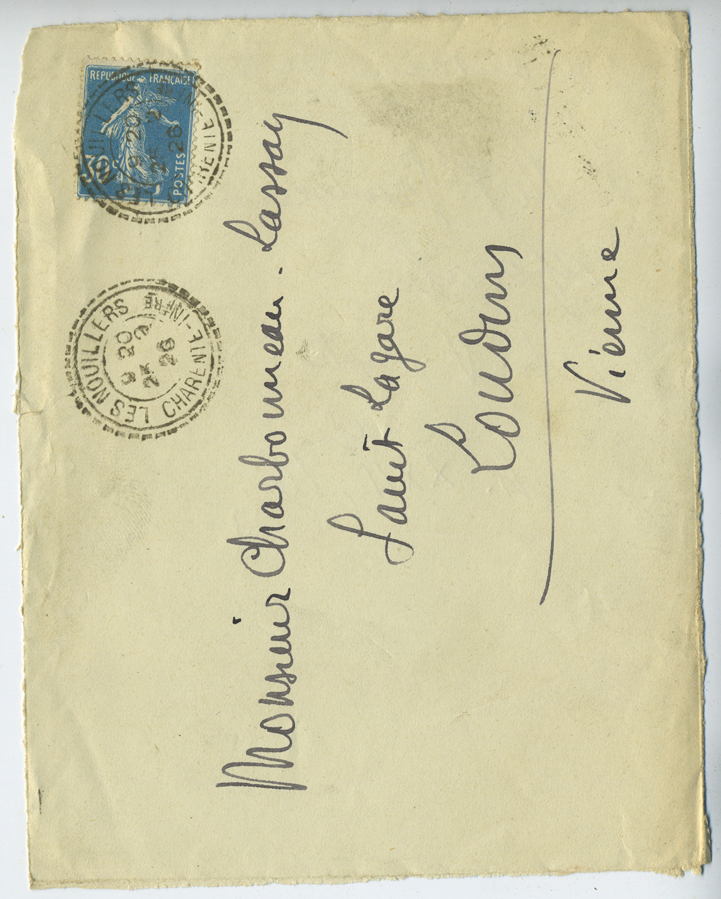 REPUBLIQUE FRANÇAISE
30c
POSTES
LES NOUILLERS
CHARENTE-INFRE
9 20
26
Monsieur Charbonneau-Lassay
Loudun
Vienne